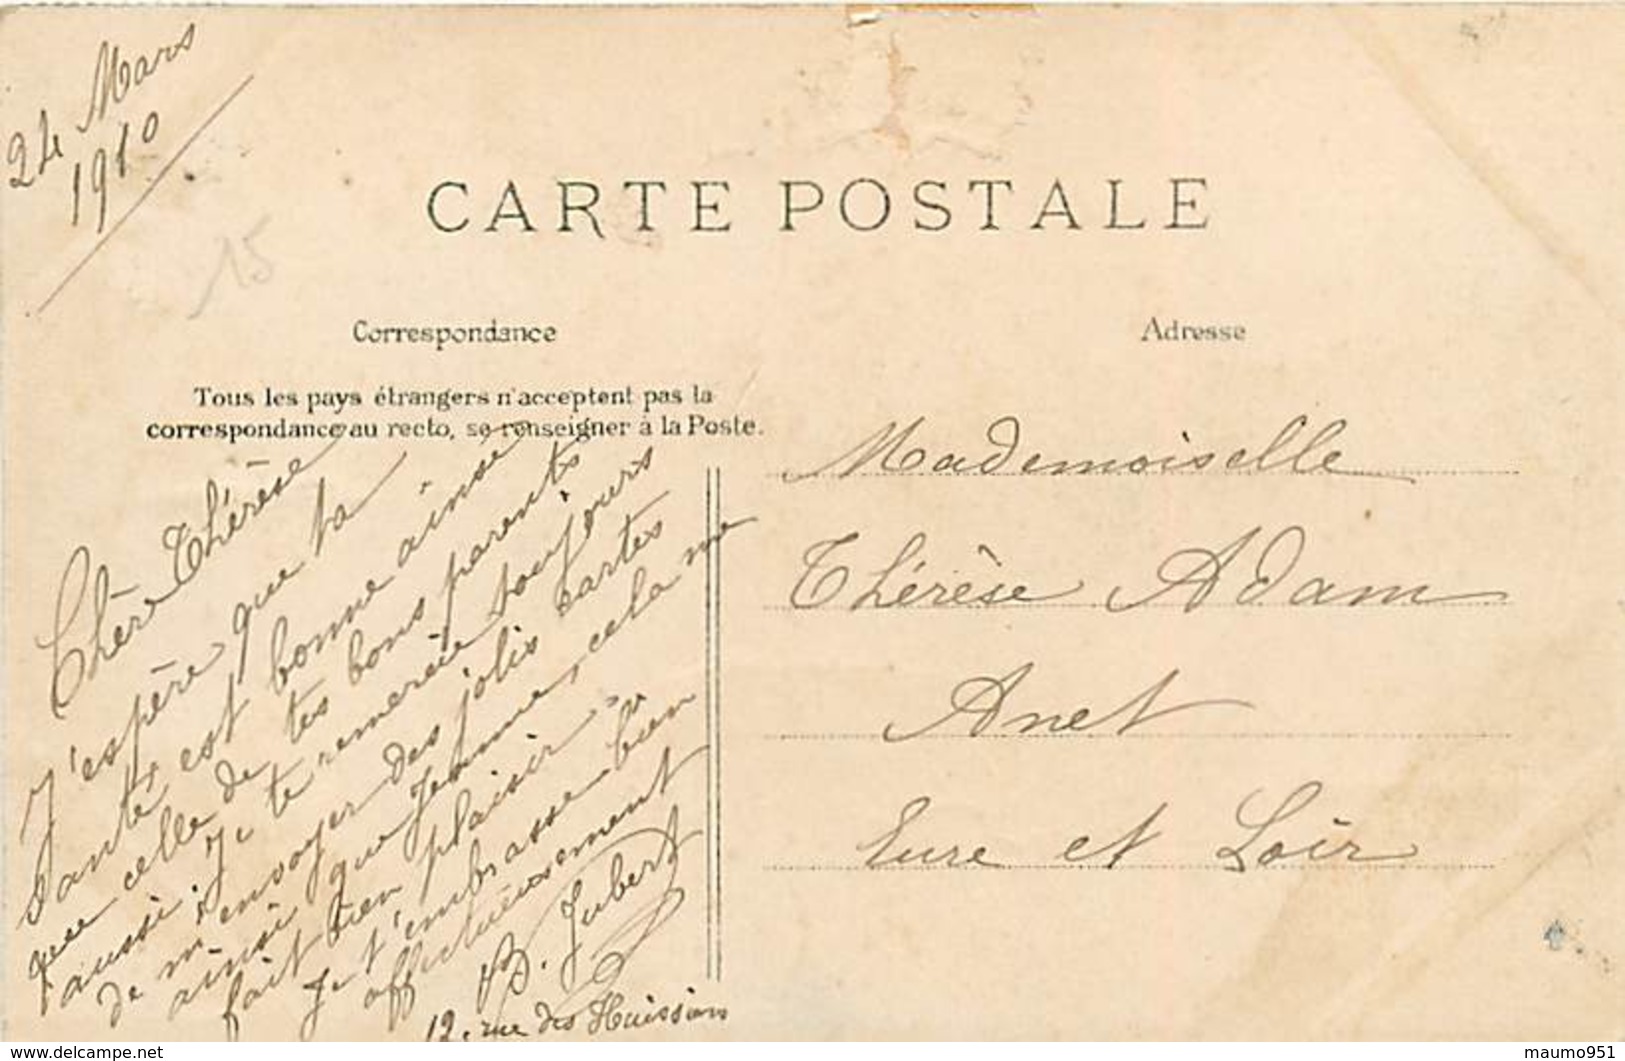 24 Mars
1910
15
CARTE POSTALE
Correspondance
Tous les pays étrangers n'acceptent pas la
correspondance au recto, se renseigner à la Poste.
Chère Thérèse
J'espère que ta
santé est bonne ainsi
que celle de tes bons parents
aussi; Je te remercie toujours
de m'envoyer des jolis cartes
ainsi que Jeanne, cela me
fait bien plaisir
Je t'embrasse bien
affectueusement
B. Jubert
12. rue des Huissiers
Adresse
Mademoiselle
Thérèse Adam
Anet
Eure et Loir
delcampe.net
maumo951